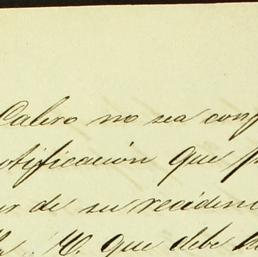 Calero no sea conf
otificación que p
ar de su recidenc
M. que debe